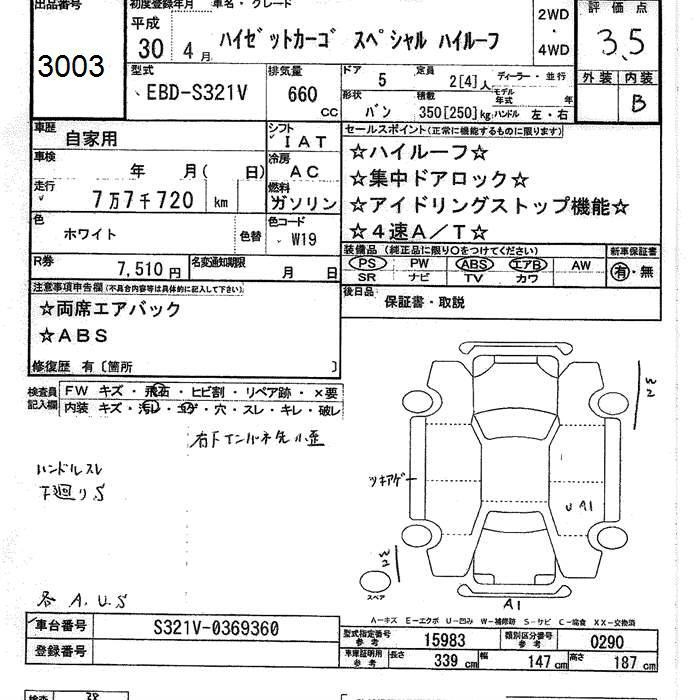 出品番号 初度登録年月 車名・グレード 2WD・4WD 評価点
3003 平成30年4月 ハイゼットカーゴ スペシャル ハイルーフ 3.5
外装 内装 B
型式 EBD-S321V 排気量 660 cc
ドア 5 定員 2[4]人 ディーラー・並行
形状 バン 積載 350[250]kg モデル年式 年 ハンドル 左・右
車歴 自家用 シフト IAT
車検 年 月( 日) 冷房 AC
走行 7万7千720 km 燃料 ガソリン
色 ホワイト 色替 色コード W19
R券 7,510円 名変通知期限 月 日
セールスポイント(正常に機能するものに限ります)
☆ハイルーフ☆
☆集中ドアロック☆
☆アイドリングストップ機能☆
☆4速A/T☆
装備品(純正品に限り○をつけてください) 新車保証書
PS PW ABS エアB AW 有・無
SR ナビ TV カワ
後日品 保証書・取説
注意事項申告欄(不具合内容等は具体的に記入して下さい)
☆両席エアバック
☆ABS
修復歴 有〔箇所 〕
検査員記入欄 FW キズ・飛石・ヒビ割・リペア跡・×要
内装 キズ・汚レ・コゲ・穴・スレ・キレ・破レ
ハンドルスレ
下廻りS
ツキアゲ
W2
U A1
W2
スペア
A1
各 A.U.S
A-キズ E-エクボ U-凹み W-補修跡 S-サビ C-腐食 XX-交換済
車台番号 S321V-0369360
登録番号
型式指定番号 参考 15983 類別区分番号 参考 0290
車庫証明用 参考 長さ 339 cm 幅 147 cm 高さ 187 cm